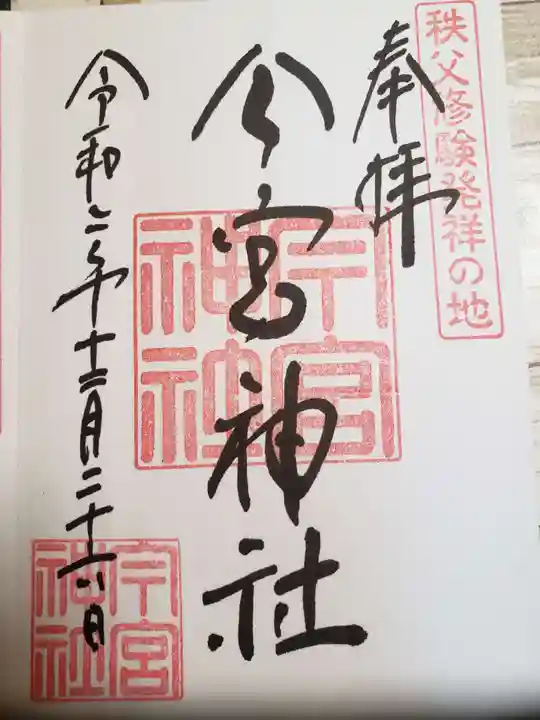 秩父修験発祥の地
奉拝
今宮神社
今宮神社
令和二年十二月二十六日
今宮神社